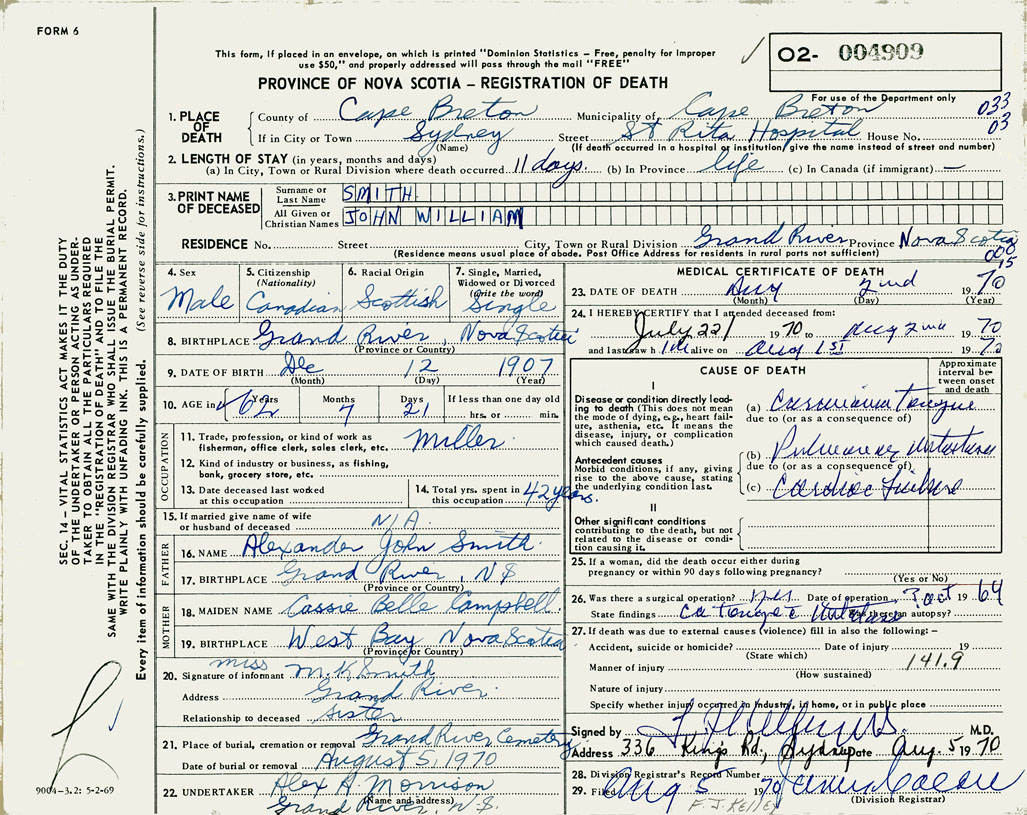 FORM 6
This form, if placed in an envelope, on which is printed "Dominion Statistics – Free, penalty for improper
use $50," and properly addressed will pass through the mail "FREE"
PROVINCE OF NOVA SCOTIA – REGISTRATION OF DEATH
O2- 004909
For use of the Department only
033
03
1. PLACE OF DEATH
County of Cape Breton Municipality of Cape Breton
If in City or Town Sydney Street St Rita Hospital House No.
(Name) (If death occurred in a hospital or institution, give the name instead of street and number)
2. LENGTH OF STAY (in years, months and days)
(a) In City, Town or Rural Division where death occurred 11 days. (b) In Province life (c) In Canada (if immigrant) —
3. PRINT NAME OF DECEASED
Surname or Last Name SMITH
All Given or Christian Names JOHN WILLIAM
RESIDENCE No. Street City, Town or Rural Division Grand River Province Nova Scotia
(Residence means usual place of abode. Post Office Address for residents in rural parts not sufficient)
008
15
4. Sex Male
5. Citizenship (Nationality) Canadian
6. Racial Origin Scottish
7. Single, Married, Widowed or Divorced (Write the word) Single
8. BIRTHPLACE Grand River, Nova Scotia
(Province or Country)
9. DATE OF BIRTH Dec 12 1907
(Month) (Day) (Year)
10. AGE in Years 62 Months 7 Days 21 If less than one day old
hrs. or min.
OCCUPATION
11. Trade, profession, or kind of work as
fisherman, office clerk, sales clerk, etc. Miller
12. Kind of industry or business, as fishing,
bank, grocery store, etc.
13. Date deceased last worked
at this occupation
14. Total yrs. spent in
this occupation 42 years.
15. If married give name of wife
or husband of deceased N/A
FATHER
16. NAME Alexander John Smith
17. BIRTHPLACE Grand River, N.S
(Province or Country)
MOTHER
18. MAIDEN NAME Cassie Belle Campbell
19. BIRTHPLACE West Bay Nova Scotia
(Province or Country)
20. Signature of informant miss M.K. Smith
Address Grand River
Relationship to deceased Sister
21. Place of burial, cremation or removal Grand River Cemetery
Date of burial or removal August 5, 1970
22. UNDERTAKER Alex A. Morrison
(Name and address)
Grand River, N.S.
MEDICAL CERTIFICATE OF DEATH
23. DATE OF DEATH Aug 2nd 1970
(Month) (Day) (Year)
24. I HEREBY CERTIFY that I attended deceased from:
July 22/ 1970 to Aug 2nd 1970
and last saw him alive on Aug 1st 1970
CAUSE OF DEATH
Approximate interval between onset and death
I
Disease or condition directly leading
to death (This does not
mean the mode of dying, e.g., heart failure,
asthenia, etc. It means the
disease, injury, or complication
which caused death.)
(a) Carcinoma Tongue
due to (or as a consequence of)
Antecedent causes
Morbid conditions, if any, giving
rise to the above cause, stating
the underlying condition last.
(b) Pulmonary Metastases
due to (or as a consequence of)
(c) Cardiac Failure
II
Other significant conditions
contributing to the death, but not
related to the disease or condition
causing it.
25. If a woman, did the death occur either during
pregnancy or within 90 days following pregnancy?
(Yes or No)
26. Was there a surgical operation? Date of operation 7 Oct 1964
State findings Ca tongue Was there an autopsy?
27. If death was due to external causes (violence) fill in also the following: –
Accident, suicide or homicide? Date of injury 19
(State which)
Manner of injury 141.9
(How sustained)
Nature of injury
Specify whether injury occurred in industry, in home, or in public place
Signed by M.D.
Address 336 Kings Rd, Sydney Date Aug. 5 1970
28. Division Registrar's Record Number
29. Filed Aug 5 1970
(Division Registrar)
F. J. KELLEY
SEC. 14 – VITAL STATISTICS ACT MAKES IT THE DUTY
OF THE UNDERTAKER OR PERSON ACTING AS UNDERTAKER
TO OBTAIN ALL THE PARTICULARS REQUIRED
IN THE "REGISTRATION OF DEATH" AND TO FILE THE
SAME WITH THE DIVISION REGISTRAR WHO SHALL ISSUE THE BURIAL PERMIT.
WRITE PLAINLY WITH UNFADING INK. THIS IS A PERMANENT RECORD.
Every item of information should be carefully supplied. (See reverse side for instructions.)
9004-3.2: 5-2-69